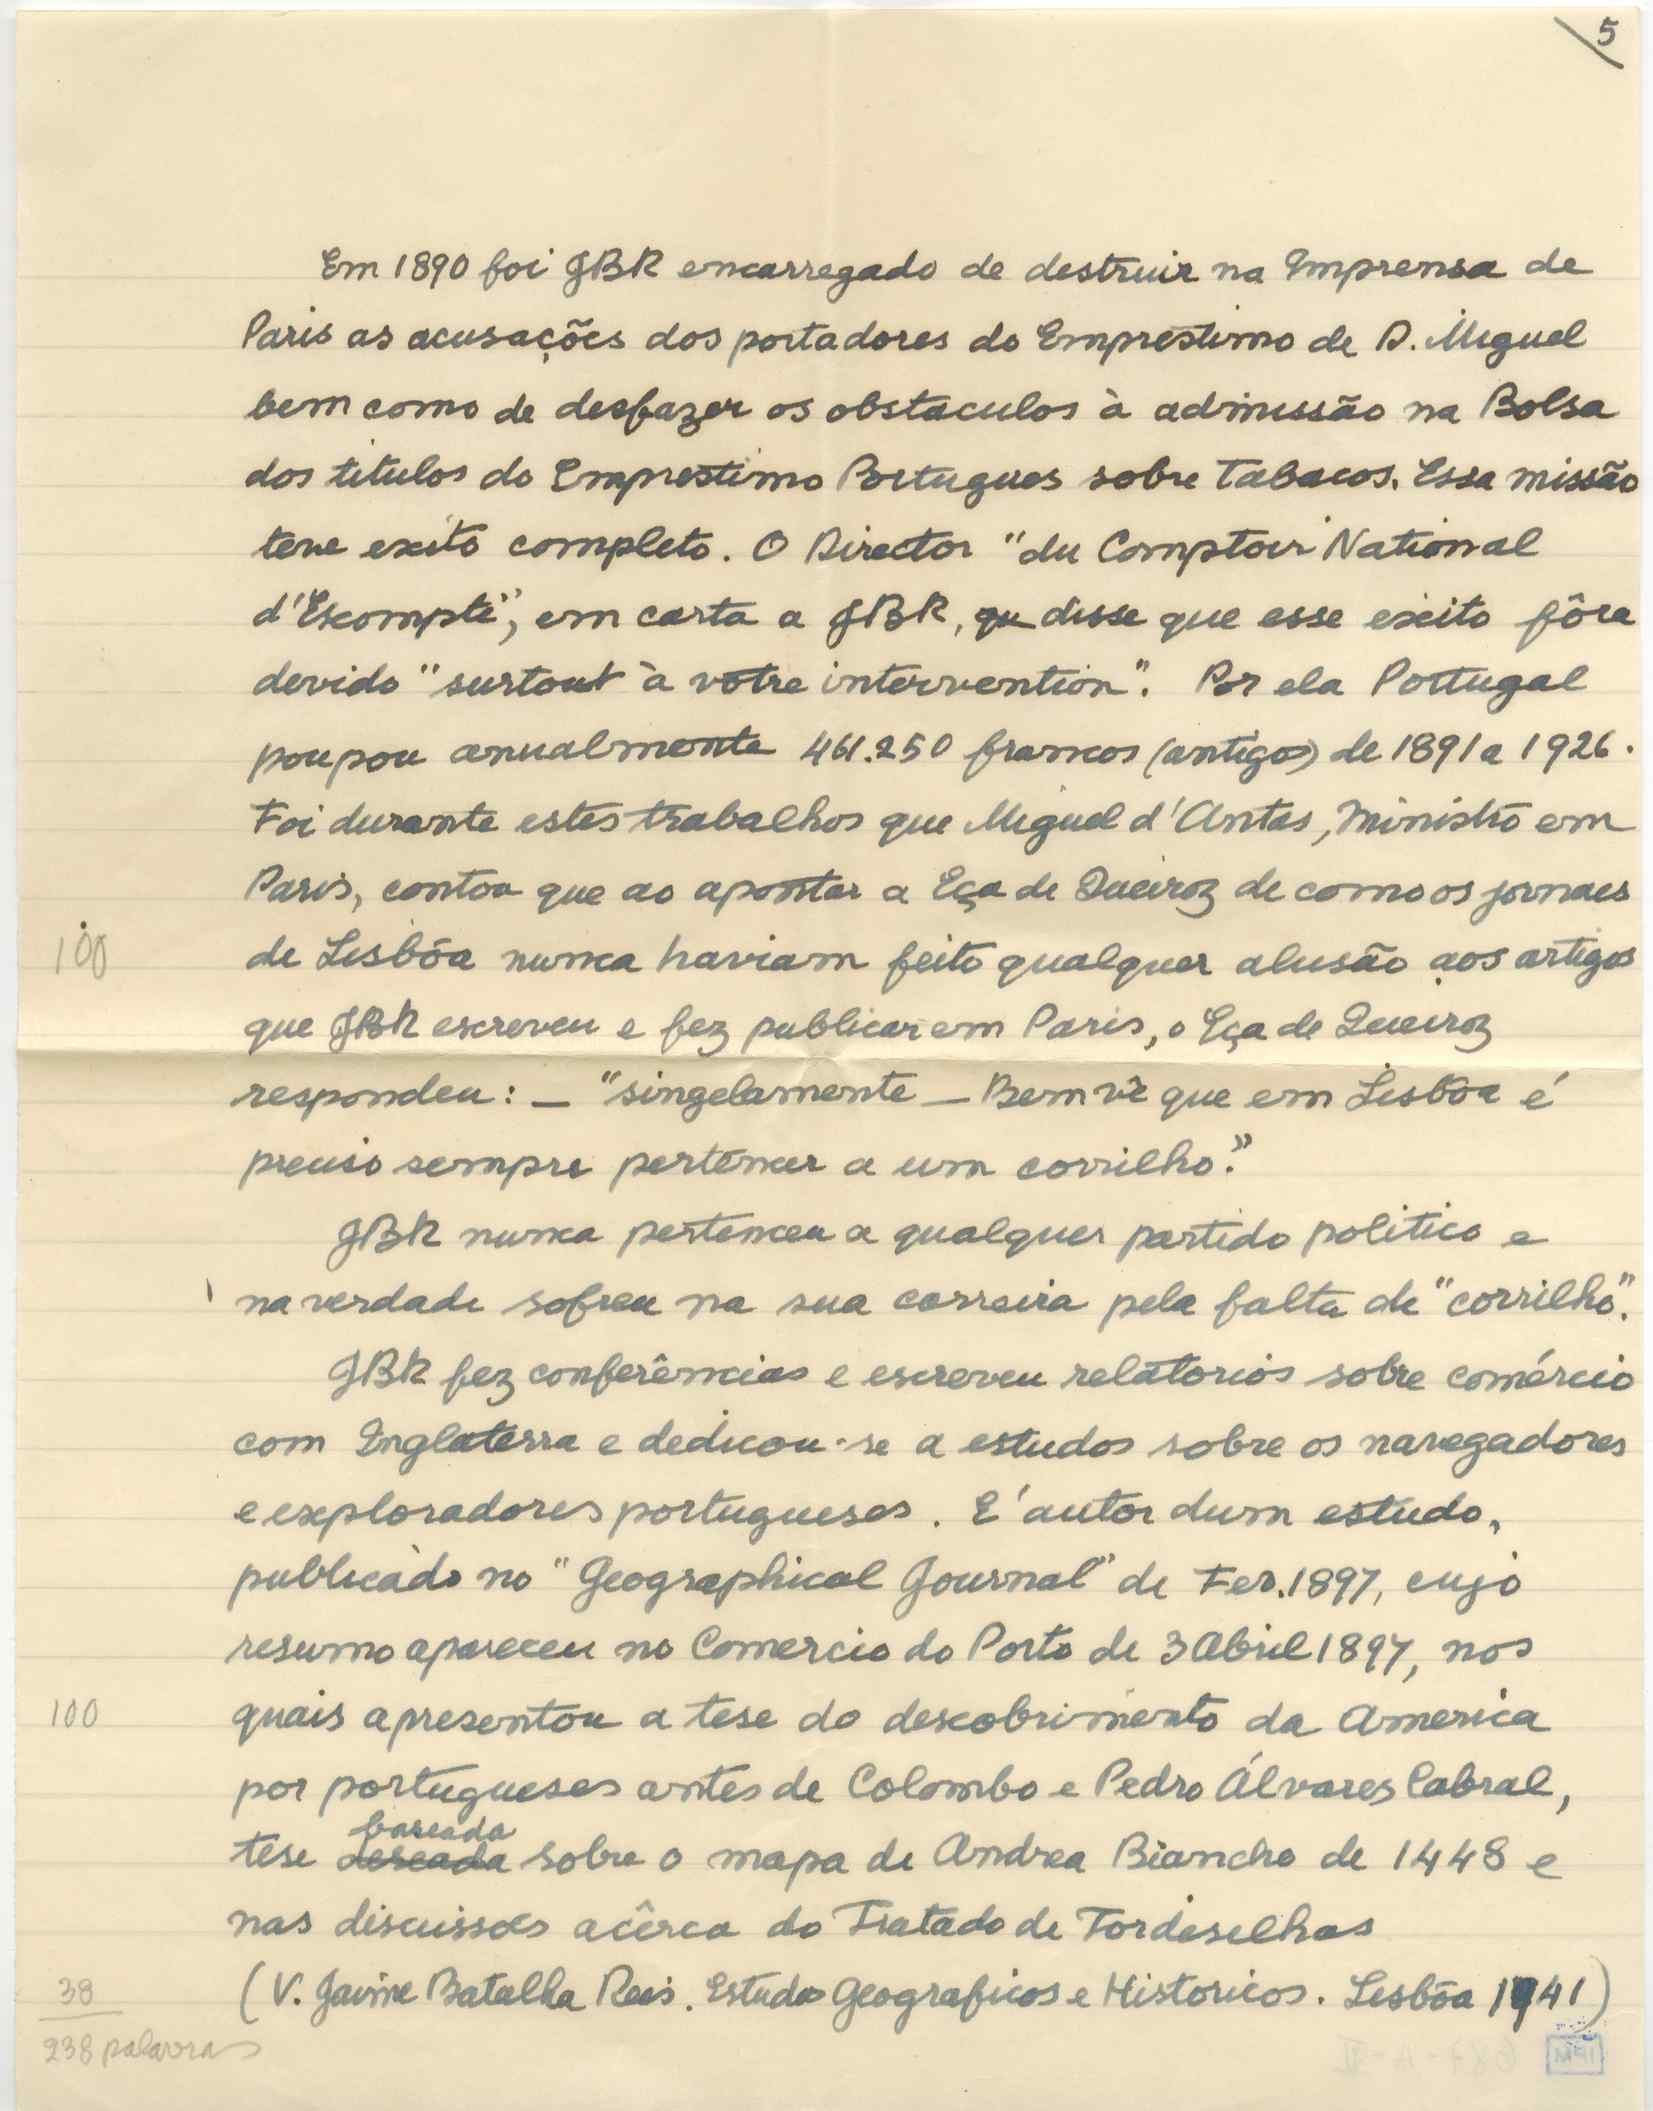 5
Em 1890 foi JBR encarregado de destruir na Imprensa de
Paris as acusações dos portadores do Emprestimo de D. Miguel
bem como de desfazer os obstaculos à admissão na Bolsa
dos titulos do Emprestimo Portugues sobre Tabacos. Essa missão
teve exito completo. O Director "du Comptoir National
d'Escompte", em carta a JBR, qu disse que esse exito fôra
devido "surtout à votre intervention". Por ela Portugal
poupou anualmente 461.250 francos (antigos) de 1891 a 1926.
Foi durante estes trabalhos que Miguel d'Antas, Ministro em
Paris, contou que ao apontar a Eça de Queiroz de como os jornaes
100 de Lisbôa nunca haviam feito qualquer alusão aos artigos
que JBR escreveu e fez publicar em Paris, o Eça de Queiroz
respondeu: — "singelamente — Bem vê que em Lisbôa é
preciso sempre pertencer a um corrilho."
JBR nunca pertenceu a qualquer partido politico e
na verdade sofreu na sua carreira pela falta de "corrilho".
JBR fez conferências e escreveu relatorios sobre comércio
com Inglaterra e dedicou-se a estudos sobre os navegadores
e exploradores portugueses. E' autor dum estudo,
publicado no "Geographical Journal" de Fev. 1897, cujo
resumo apareceu no Comercio do Porto de 3 Abril 1897, nos
100 quais apresentou a tese do descobrimento da America
por portugueses antes de Colombo e Pedro Álvares Cabral,
baseada
tese sobre o mapa de Andrea Biancho de 1448 e
nas discussões acêrca do Tratado de Tordesilhas
38 (V. Jaime Batalha Reis. Estudos Geograficos e Historicos. Lisbôa 1941)
238 palavras